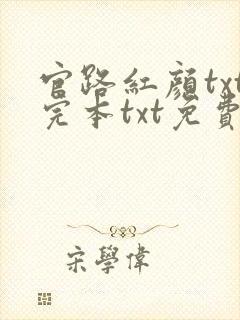 官路紅顏txt
完本txt免費
宋學偉